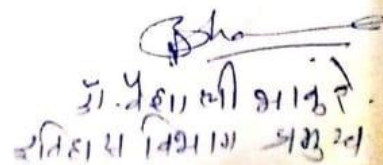 डॉ. वैशाली भाकुरे.
इतिहास विभाग प्रमुख